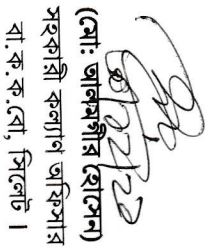 (মো: আলমগীর হোসেন)
সহকারী কল্যাণ অফিসার
বা.ক.ক.বো, সিলেট ।